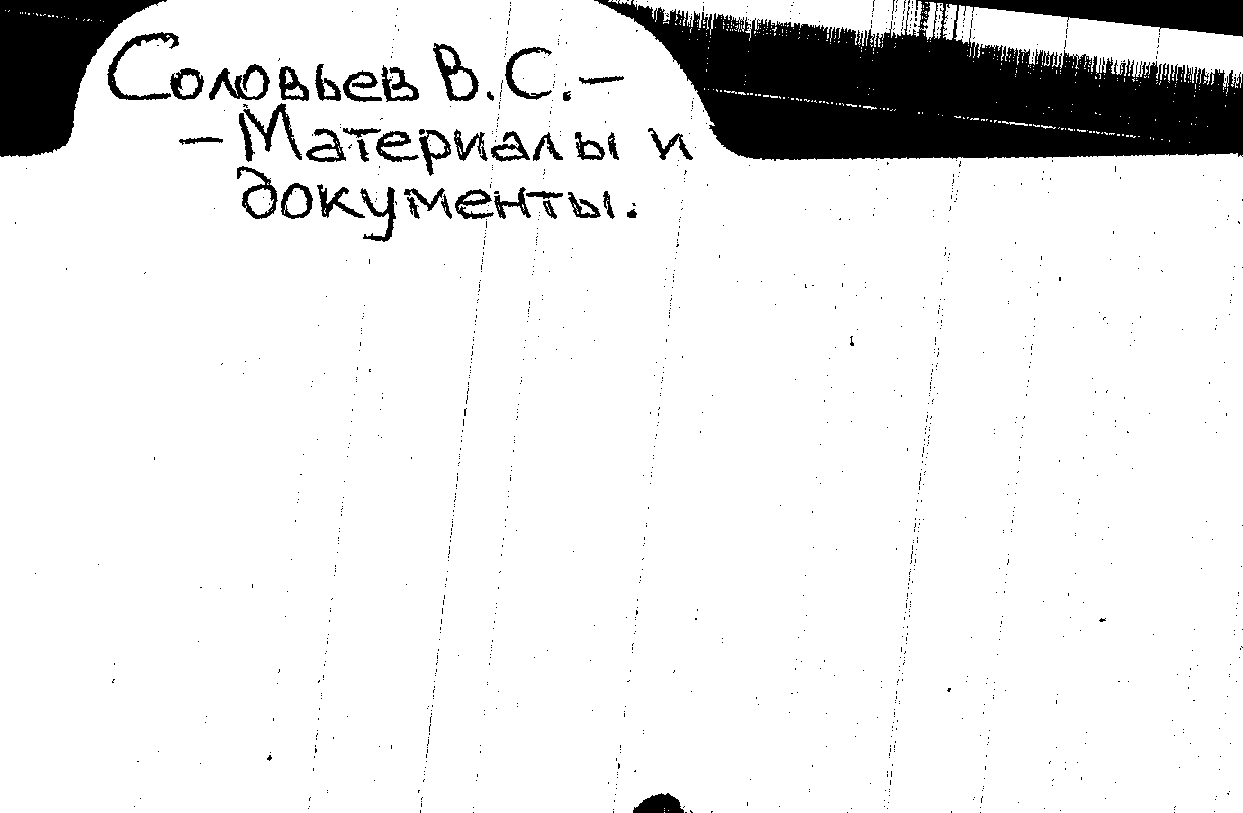 Соловьев В.С. –
– Материалы и
документы.